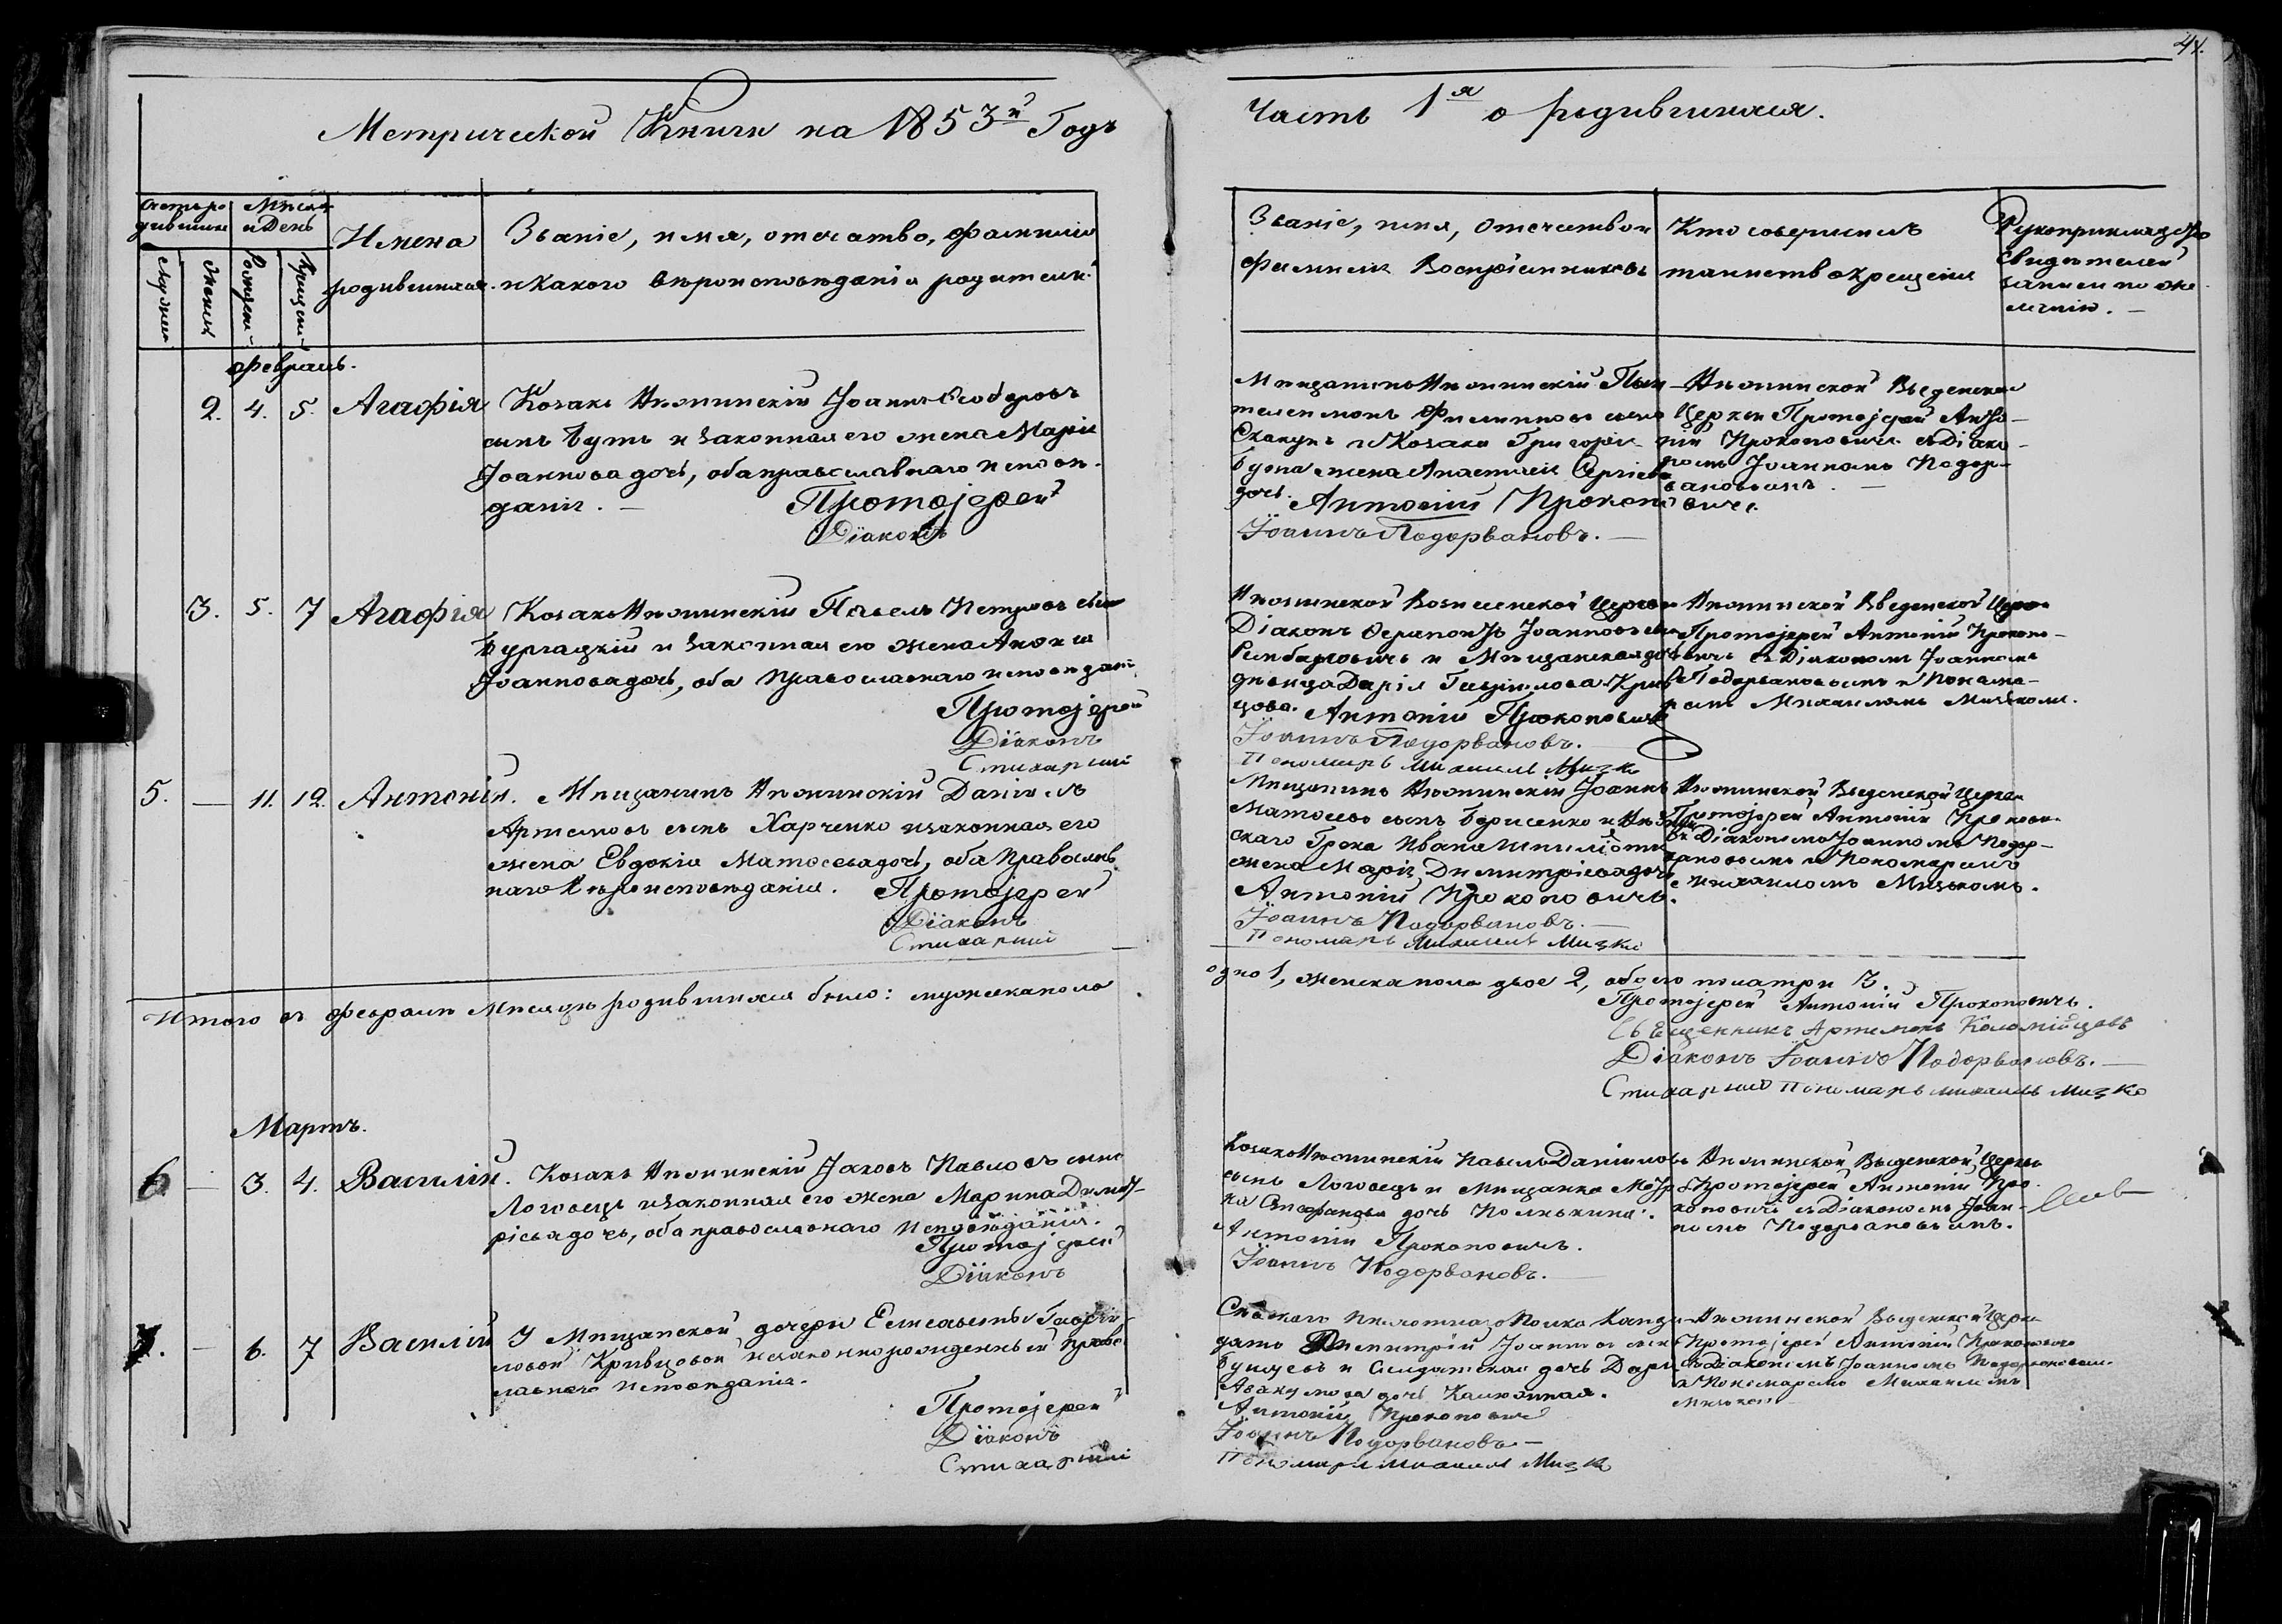 41.
Метрической Книги на 1853й Годъ
Часть 1я о родившихся.
Счетъ родившихся
Мѣсяцъ и День
Имена родившихся.
Званіе, имя, отечество, фамилія
и какого вѣроисповѣданія родители.
Званіе, имя, отечество и
фамилія Воспріемниковъ
Кто совершилъ
таинство крещенія
Рукоприкладство
свидѣтелей
записи по же
ланію. —
Февраль.
2. 4. 5. Агафія
Козакъ Нѣжинскій Іоаннъ Ѳеодоровъ
сынъ Бутъ и законная его жена Марія
Іоаннова дочь, оба православнаго исповѣ-
данія. — Протоіерей
Діаконъ
Мѣщанинъ Нѣжинскій Пан-
телеимонъ Филипповъ сынъ
и Козака Григорія
жена Анастасія Сергіева
дочь. Антоній Прокоповичъ
Іоаннъ Подорвановъ. —
Нѣжинской Введенской
Церкви Протоіерей Анто-
ній Прокоповичъ съ Діако-
номъ Іоанномъ Подор-
вановымъ. —
3. 5. 7 Агафія
Козакъ Нѣжинскій Павелъ Петровъ сынъ
и законная его жена
Іоаннова дочь, оба православнаго исповѣданія
Протоіерей
Діаконъ
Стихарный
Нѣжинской Вознесенской Церкви
Діаконъ Іоанновъ сынъ
и Мѣщанская дочь
дѣвица Дарія Гавріилова Крив
цова. Антоній Прокоповичъ
Іоаннъ Подорвановъ. —
Пономарь Михаилъ Мизко
Нѣжинской Введенской Церкви
Протоіерей Антоній Прокопо-
вичъ съ Діакономъ Іоанномъ
Подорвановымъ и Понома-
ремъ Михаиломъ Мизькомъ.
5. — 11. 12. Антоній.
Мѣщанинъ Нѣжинскій Даніилъ
Артемовъ сынъ Харченко и законная его
жена Евдокія Матѳеева дочь, оба Православ
наго Вѣроисповѣданія. Протоіерей
Діаконъ
Стихарный
Мѣщанинъ Нѣжинскій Іоаннъ
Матѳеевъ сынъ Борисенко и Нѣжин
скаго Грека Ивана
жена Марія Димитріева дочь
Антоній Прокоповичъ.
Іоаннъ Подорвановъ. —
Пономарь Михаилъ Мизко
Нѣжинской Введенской Церкви
Протоіерей Антоній Прокопо-
вичъ Діакономъ Іоанномъ Подор-
вановымъ и Пономаремъ
Михаиломъ Мизькомъ.
Итого въ февралѣ мѣсяцѣ родившихся было: мужеска пола
одно 1, женска пола двое 2, обоего пола три 3.
Протоіерей Антоній Прокоповичъ.
Священникъ Артемонъ Коломійцовъ
Діаконъ Іоаннъ Подорвановъ. —
Стихарный Пономарь Михаилъ Мизко
Мартъ.
6 — 3. 4. Василій.
Козакъ Нѣжинскій Іаковъ Павловъ сынъ
Логвецъ и законная его жена Марина Димит-
ріева дочь, оба православнаго исповѣданія.
Протоіерей
Діаконъ
Козакъ Нѣжинскій Павелъ Даніиловъ
сынъ Логвецъ и Мѣщанка
Стефанова дочь
Антоній Прокоповичъ.
Іоаннъ Подорвановъ. —
Нѣжинской Введенской Церкви
Протоіерей Антоній Про
коповичъ съ Діакономъ Іоан-
номъ Подорвановымъ.
7. — 6. 7 Василій
У Мѣщанской дочери Елисаветы Гаврі-
ловой Кривцовой незаконнорожденный правос
лавнаго исповѣданія.
Протоіерей
Діаконъ
Стихарный
Пѣхотнаго Полка Канди
датъ Димитрій Іоанновъ сынъ
и Солдатская дочь Дарія
дочь
Антоній Прокоповичъ
Іоаннъ Подорвановъ —
Пономарь Михаилъ Мизко
Нѣжинской Введенской Церкви
Протоіерей Антоній Прокоповичъ
съ Діакономъ Іоанномъ Подорвановымъ
и Пономаремъ Михаиломъ
Мизькомъ